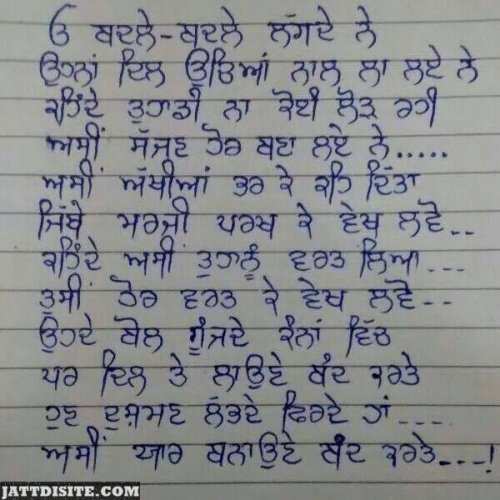 ਓ ਬਦਲੇ-ਬਦਲੇ ਲੱਗਦੇ ਨੇ
ਉਹਨਾਂ ਦਿਲ ਉੱਚਿਆਂ ਨਾਲ ਲਾ ਲਏ ਨੇ
ਕਹਿੰਦੇ ਤੁਹਾਡੀ ਨਾ ਕੋਈ ਲੋੜ ਰਹੀ
ਅਸੀਂ ਸੱਜਣ ਹੋਰ ਬਣਾ ਲਏ ਨੇ.....
ਅਸੀਂ ਅੱਖੀਆਂ ਭਰ ਕੇ ਕਹਿ ਦਿੱਤਾ
ਜਿੱਥੇ ਮਰਜੀ ਪਰਖ ਕੇ ਵੇਖ ਲਵੋ..
ਕਹਿੰਦੇ ਅਸੀਂ ਤੁਹਾਨੂੰ ਵਰਤ ਲਿਆ...
ਤੁਸੀਂ ਹੋਰ ਵਰਤ ਕੇ ਵੇਖ ਲਵੋ..
ਉਹਦੇ ਬੋਲ ਗੂੰਜਦੇ ਕੰਨਾਂ ਵਿੱਚ
ਪਰ ਦਿਲ ਤੇ ਲਾਉਣੇ ਬੰਦ ਕਰਤੇ
ਹੁਣ ਦੁਸ਼ਮਣ ਲੱਭਦੇ ਫਿਰਦੇ ਹਾਂ....
ਅਸੀਂ ਯਾਰ ਬਨਾਉਣੇ ਬੰਦ ਕਰਤੇ...!
JATTDISITE.COM